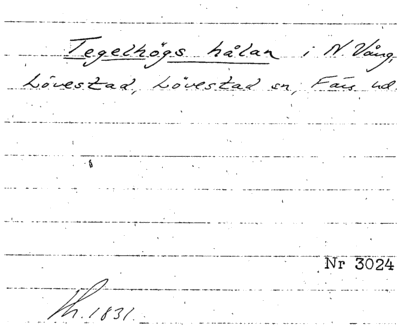 Tegelhögs hålan i N. Vång,
Lövestad, Lövestad sn, Färs hd.
Nr 3024
Th. 1831.